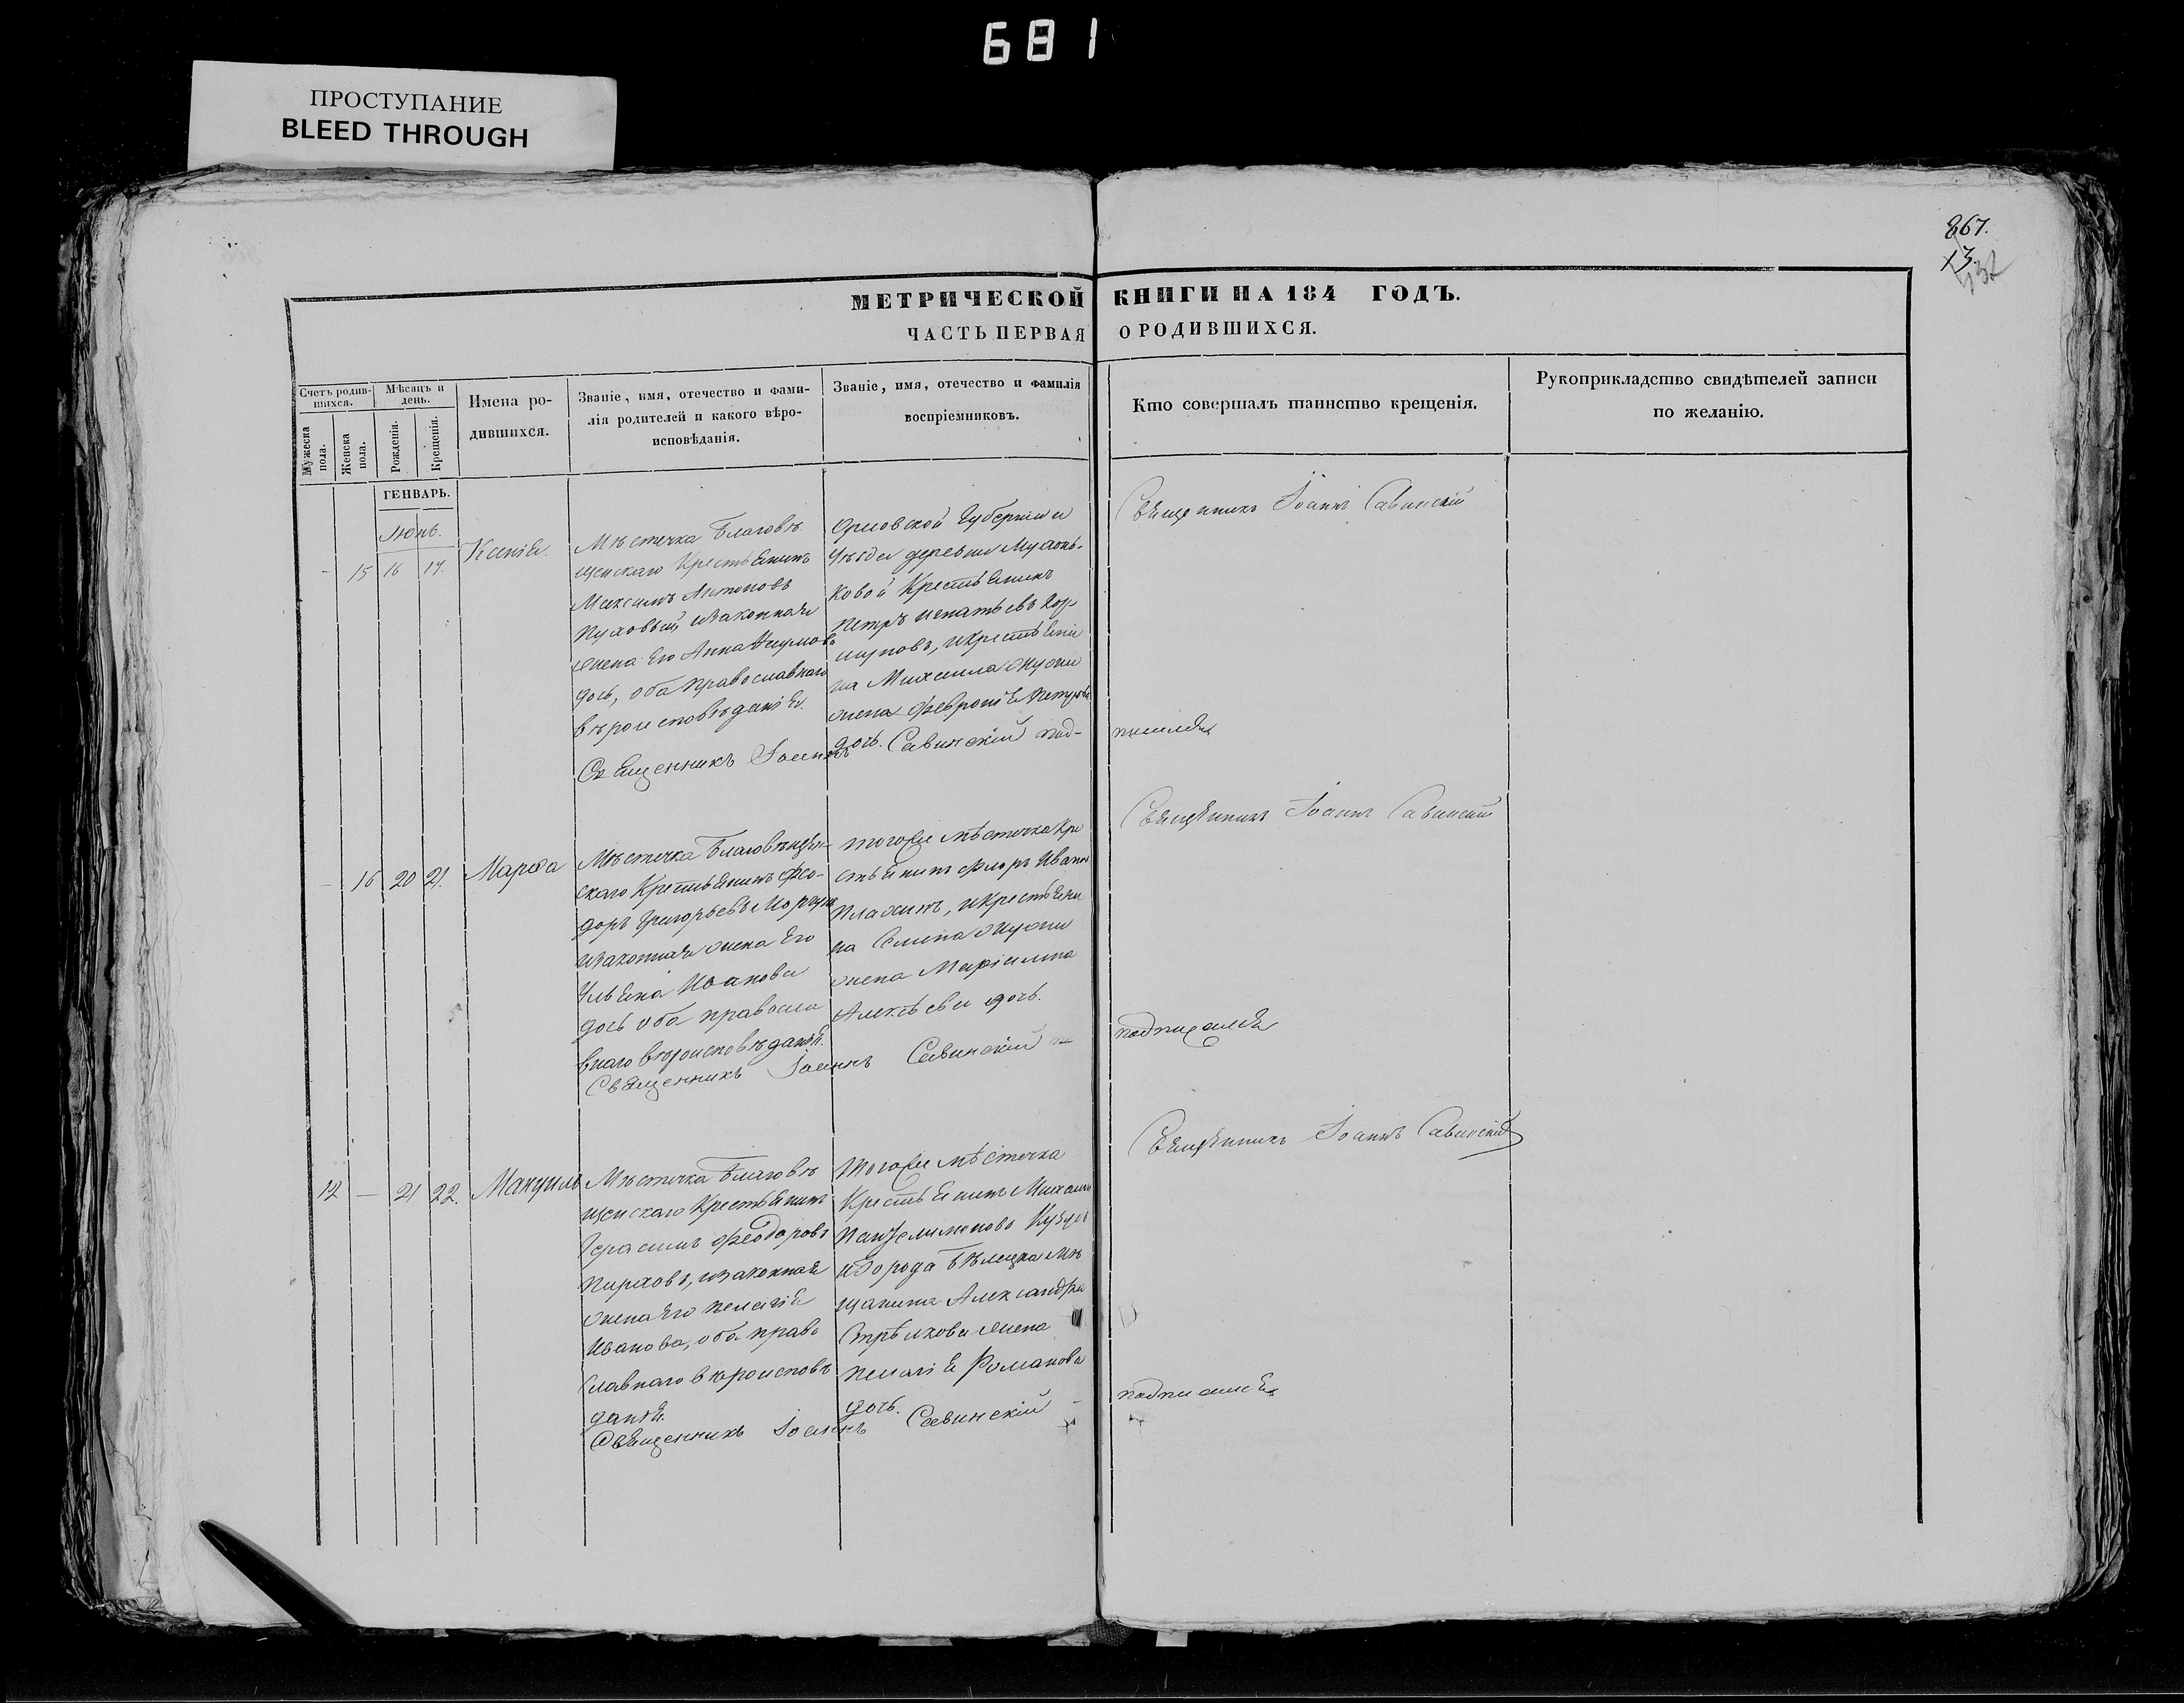 681
ПРОСТУПАНИЕ
BLEED THROUGH
867.
13.
МЕТРИЧЕСКОЙ КНИГИ НА 184 ГОДЪ.
ЧАСТЬ ПЕРВАЯ О РОДИВШИХСЯ.
Счетъ родив-
шихся.
Мужеска
пола.
Женска
пола.
Мѣсяцъ и
день.
Рожденія.
Крещенія.
Имена ро-
дившихся.
Званіе, имя, отечество и фами-
лія родителей и какого вѣро-
исповѣданія.
Званіе, имя, отечество и фамилія
воспріемниковъ.
Кто совершалъ таинство крещенія.
Рукоприкладство свидѣтелей записи
по желанію.
ГЕНВАРЬ.
Июнь.
- 15 16 17.
Ксенія.
Мѣстечка Благовѣ
щенскаго Крестьянинъ
Максимъ Антоновъ
Пуховый, изаконная
жена Его Анна Наумова
дочь, оба православнаго
вѣроисповѣданія.
Орловской Губерніи и
Уѣзда деревни
ковой Крестьянинъ
Петръ Игнатьевъ Кор
шуновъ, икрестьяни
на Михаила жуои
жена Февронія Петрова
дочь.
Священникъ Іоаннъ Савинскій
Священникъ Іоаннъ Савинскій под-
писался
- 16 20 21.
Марѳа
Мѣстечка Благовѣщен-
скаго Крестьянинъ Фео-
доръ Григорьевъ Моргунъ
изаконная жена Его
Ульяна Иванова
дочь оба правосла
внаго вѣроисповѣданія.
тогоже мѣстечка Кре
стьянинъ Флоръ Ивановъ
Плахинъ, икрестьяни
на Семена жуои
жена Маріамна
Алексѣева дочь.
Священникъ Іоаннъ Савинскій
Священникъ Іоаннъ Савинскій
подписался
12 - 21 22.
Мануилъ
Мѣстечка Благовѣ
щенскаго Крестьянинъ
Герасимъ Феодоровъ
Пираховъ, изаконная
жена Его Пелагія
Иванова, оба право
славнаго вѣроисповѣ
данія.
Тогоже мѣстечка
Крестьянинъ Михаилъ
Пантелимоновъ
иГорода Бѣлицка Мѣ
щанина Александра
Стрѣлкова жена
Пелагія Романова
дочь.
Священникъ Іоаннъ Савинскій
Священникъ Іоаннъ Савинскій
подписался